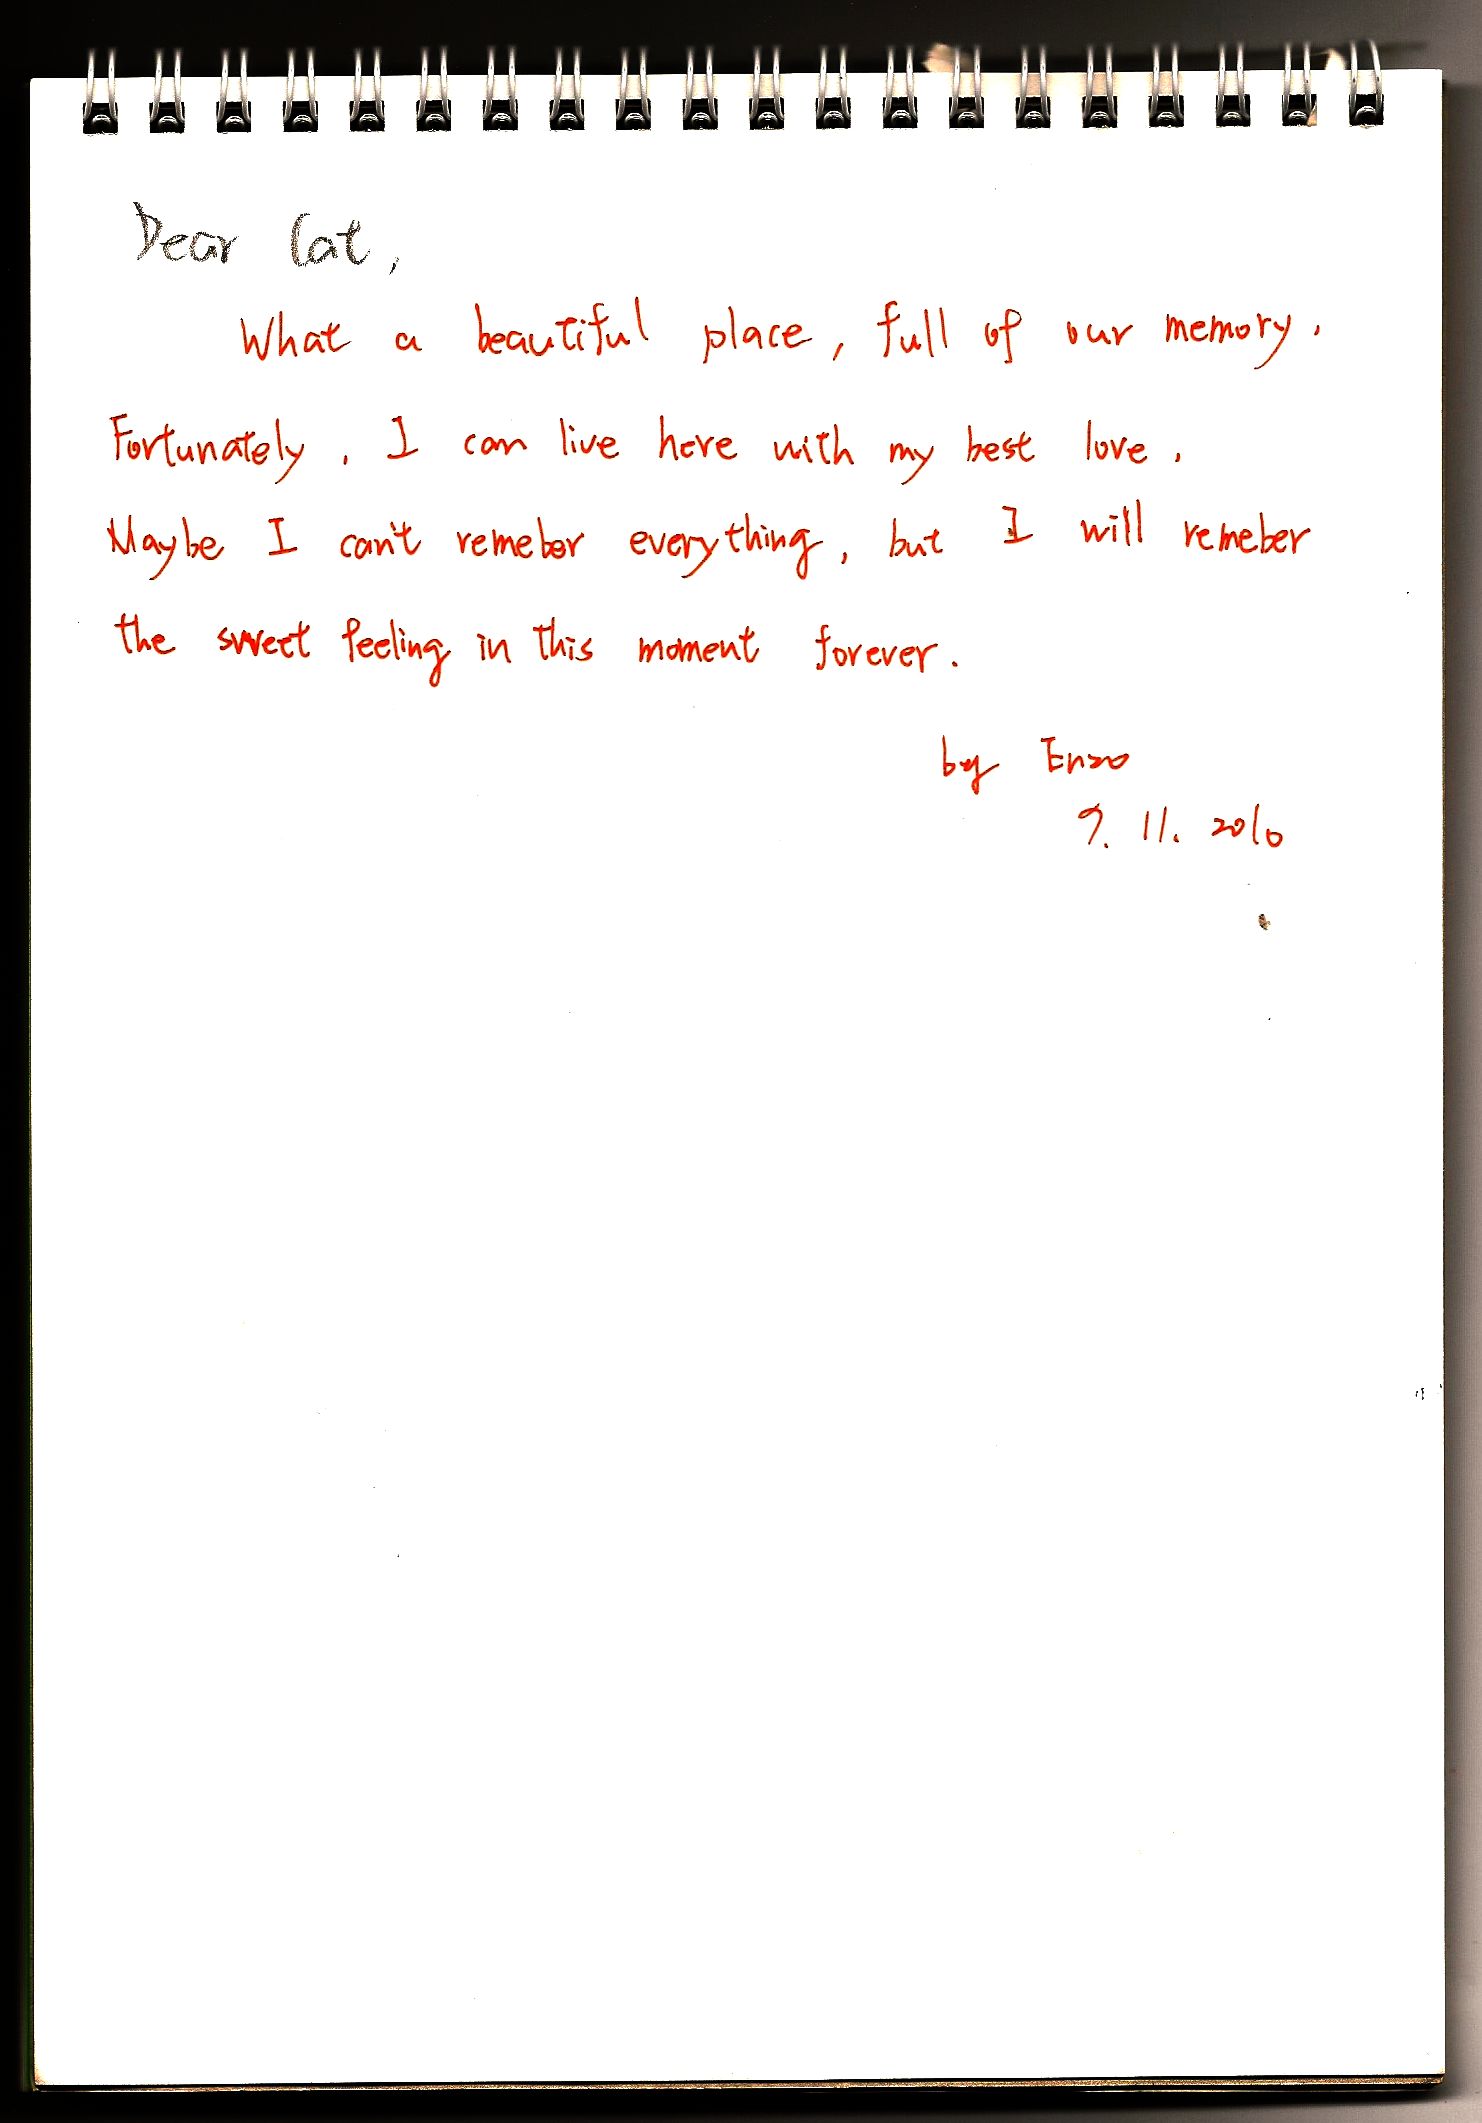 Dear Cat,
What a beautiful place, full of our memory.
Fortunately, I can live here with my best love.
Maybe I can't remeber everything, but I will remeber
the sweet feeling in this moment forever.
by Enzo
9. 11. 2010